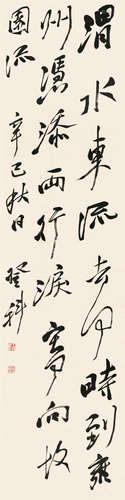 渭水東流去何時到雍
州憑添兩行淚寄向故
園流
辛巳秋日
登科